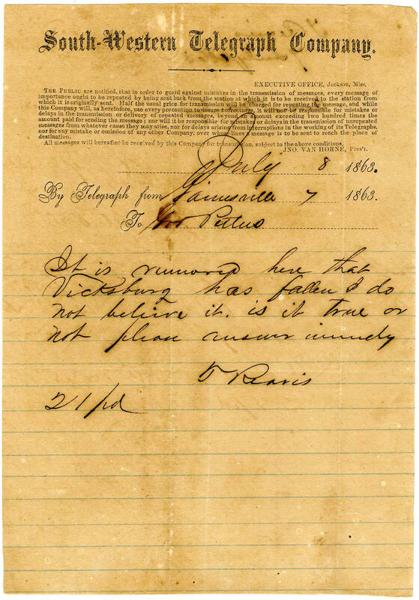 South-Western Telegraph Company.
EXECUTIVE OFFICE, Jackson, Miss.
THE PUBLIC are notified, that in order to guard against mistakes in the transmission of messages, every message of
importance ought to be repeated by being sent back from the station at which it is to be received to the station from
which it is originally sent. Half the usual price for transmission will be charged for repeating the message, and while
this Company will, as heretofore, use every precaution to ensure correctness, it will not be responsible for mistakes or
delays in the transmission or delivery of repeated messages, beyond an amount exceeding two hundred times the
amount paid for sending the message; nor will it be responsible for mistakes or delays in the transmission of unrepeated
messages from whatever cause they may arise, nor for delays arising from interruptions in the working of its Telegraphs,
or for any mistake or omission of any other Company, over whose lines a message is to be sent to reach the place of
destination.
All messages will hereafter be received by this Company for transmission, subject to the above conditions.
JNO. VAN HORNE, Pres't.
July 8 1863.
By Telegraph from 7 1863.
To Gov Pettus
It is rumored here that
Vicksburg has fallen I do
not believe it. is it true or
not please answer immedy
Davis
21 pd